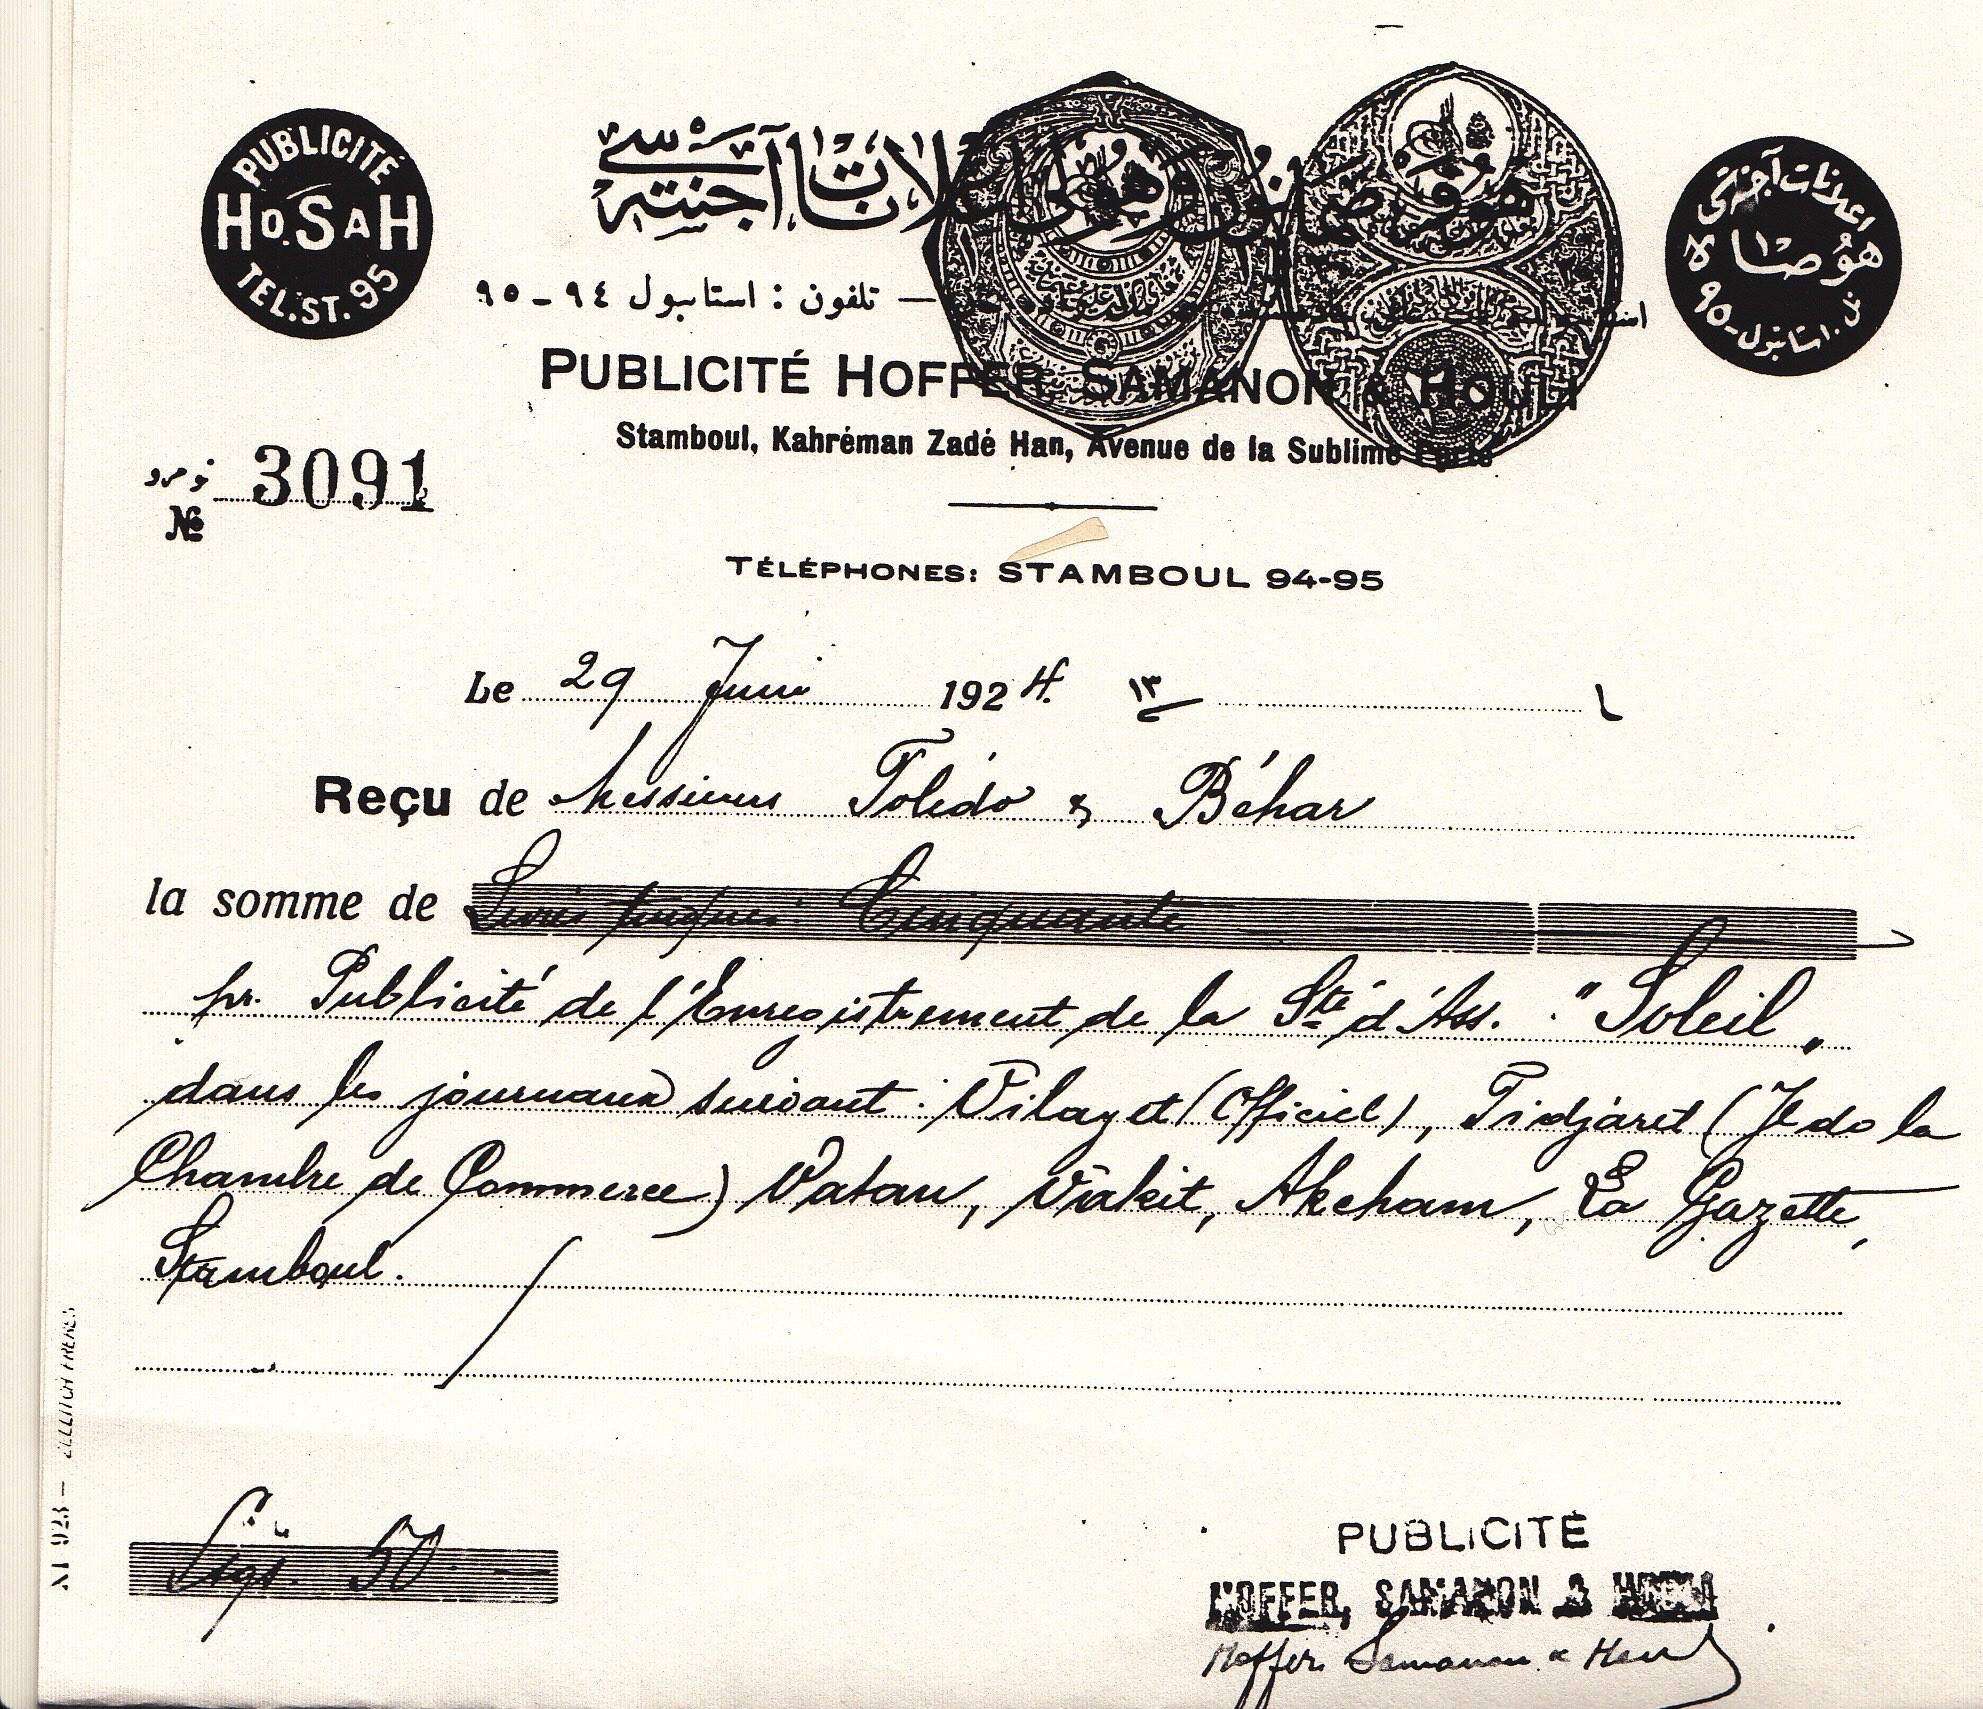 PUBLICITÉ
HO.SAH
TEL.ST. 95
هوفر، صمانون وهولى اعلانات آجنته سى
اعلانات آجنته سى
هوصا
تل. استانبول - ٩٥
تلفون : استانبول ٩٤ - ٩٥
PUBLICITÉ HOFFER, SAMANON & HOULI
Stamboul, Kahréman Zadé Han, Avenue de la Sublime Porte
نومرو
№ 3091
TÉLÉPHONES: STAMBOUL 94-95
Le 29 Juin 1924. ١٣
Reçu de Messieurs Tolédo & Béhar
la somme de Livres turques Cinquante
pr. Publicité de l'Enregistrement de la Sté d'Ass. "Soleil„
dans les journaux suivant: Vilayet (Officiel), Tidjaret (Jl de la
Chambre de Commerce) Vatan, Vakit, Akcham, La Gazette,
Stamboul.
XI 923 — ZELLITCH FRÈRES
Ltqs. 50
PUBLICITÉ
HOFFER, SAMANON & HOULI
Hoffer Samanon & Houli